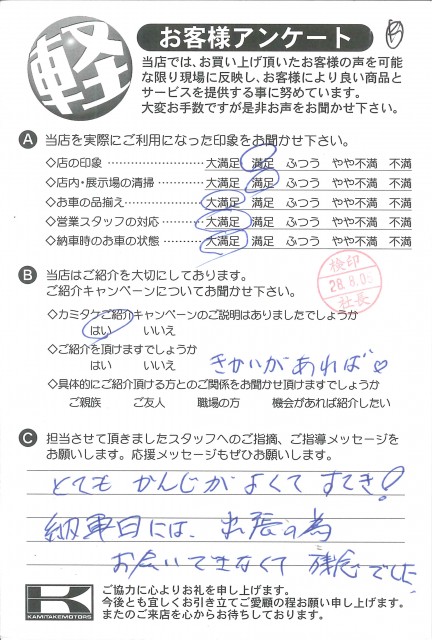 軽
お客様アンケート
当店では、お買い上げ頂いたお客様の声を可能
な限り現場に反映し、お客様により良い商品と
サービスを提供する事に努めています。
大変お手数ですが是非お声をお聞かせ下さい。
A 当店を実際にご利用になった印象をお聞かせ下さい。
◇店の印象 …………………… 大満足 満足 ふつう やや不満 不満
◇店内・展示場の清掃 ………… 大満足 満足 ふつう やや不満 不満
◇お車の品揃え ……………… 大満足 満足 ふつう やや不満 不満
◇営業スタッフの対応 ………… 大満足 満足 ふつう やや不満 不満
◇納車時のお車の状態 ………… 大満足 満足 ふつう やや不満 不満
B 当店はご紹介を大切にしてあります。
ご紹介キャンペーンについてお聞かせ下さい。
検印
28.8.05
社長
◇カミタケご紹介キャンペーンのご説明はありましたでしょうか
はい いいえ
◇ご紹介を頂けますでしょうか
はい いいえ きかいがあれば♡
◇具体的にご紹介頂ける方とのご関係をお聞かせ頂けますでしょうか
ご親族 ご友人 職場の方 機会があれば紹介したい
C 担当させて頂きましたスタッフへのご指摘、ご指導メッセージを
お願いします。応援メッセージもぜひお願いします。
とても かんじが よくて すてき!
納車日には、出張の為
お会いできなくて 残念でした
K
KAMITAKEMOTORS
ご協力に心よりお礼を申し上げます。
今後とも宜しくお引き立てご愛顧の程お願い申し上げます。
またのご来店を心からお待ちしております。